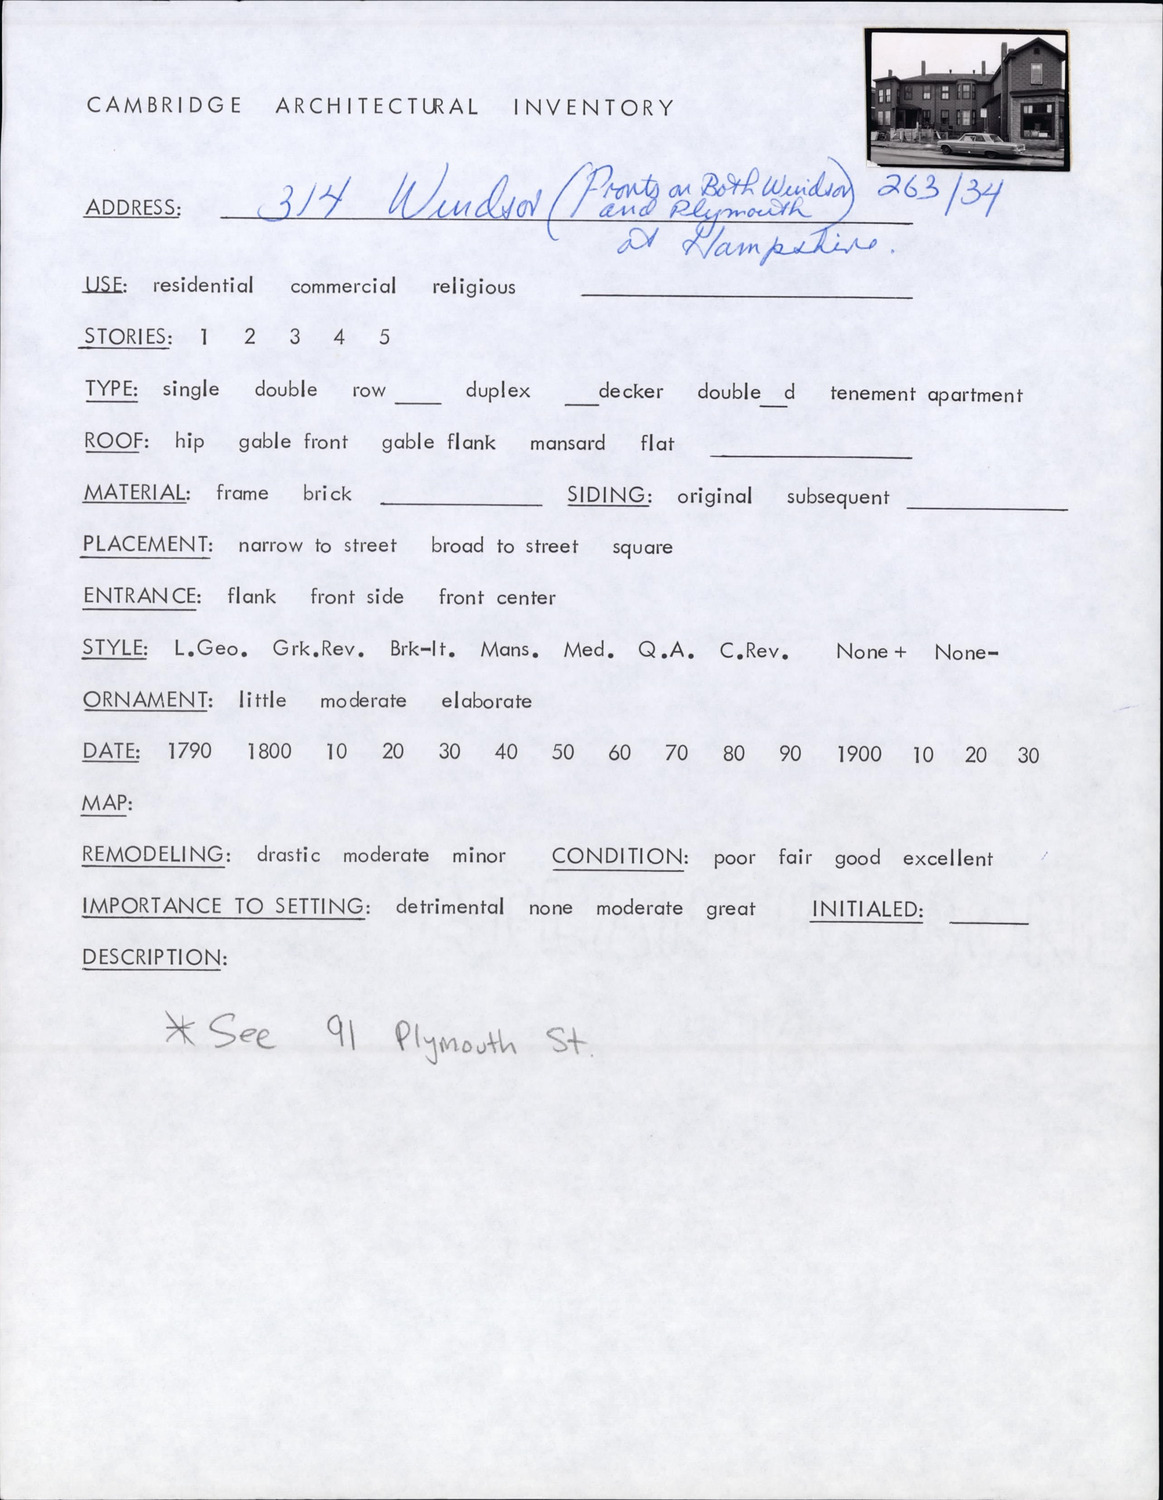 CAMBRIDGE ARCHITECTURAL INVENTORY
ADDRESS: 314 Windsor (Fronts on Both Windsor and Plymouth) 263/34
at Hampshire.
USE: residential commercial religious
STORIES: 1 2 3 4 5
TYPE: single double row ____ duplex ___decker double__d tenement apartment
ROOF: hip gable front gable flank mansard flat
MATERIAL: frame brick SIDING: original subsequent
PLACEMENT: narrow to street broad to street square
ENTRANCE: flank front side front center
STYLE: L.Geo. Grk.Rev. Brk-It. Mans. Med. Q.A. C.Rev. None+ None-
ORNAMENT: little moderate elaborate
DATE: 1790 1800 10 20 30 40 50 60 70 80 90 1900 10 20 30
MAP:
REMODELING: drastic moderate minor CONDITION: poor fair good excellent
IMPORTANCE TO SETTING: detrimental none moderate great INITIALED:
DESCRIPTION:
* See 91 Plymouth St.